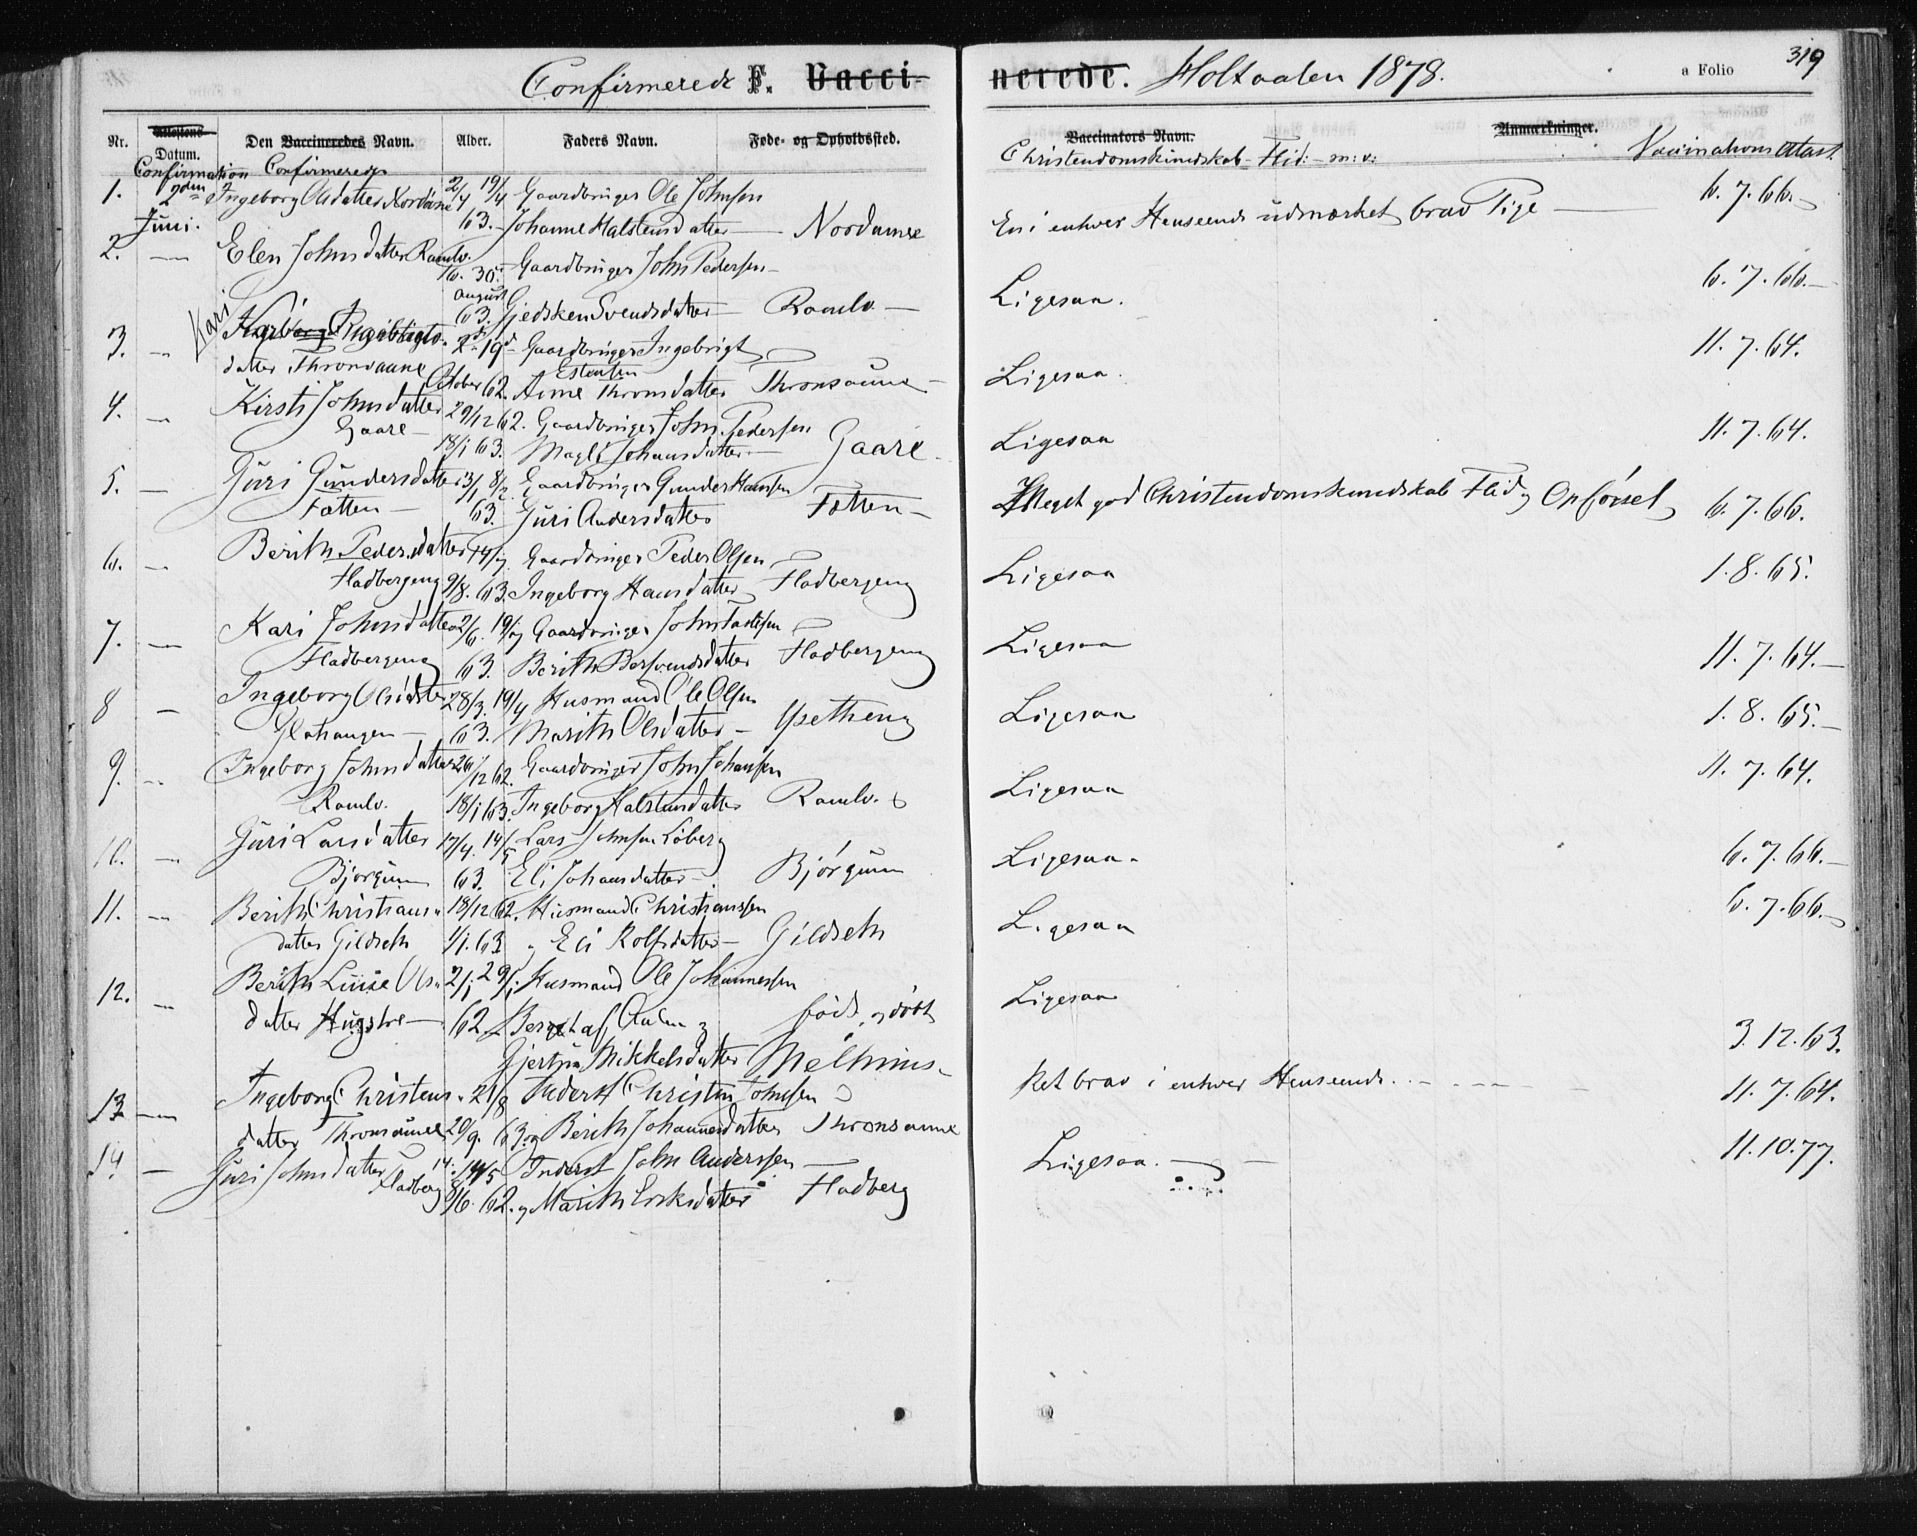 319
Confirmerede F. Vacci-
nerede. Holtaalen 1878. a Folio
Nr. Attestens Datum. Den Vaccineredes Navn. Alder. Faders Navn. Føde- og Opholdssted. Vaccinators Navn. Anmærkninger.
Confirmation Confirmerede Christendomskundskab Flid: m: v: Vaccinations Attest
1. 2den Ingeborg Olsdatter 2/4 19/4 Gaardbruger Ole Johnsen
Juni. 63. Johanne Halstensdatter Nordaunee En i enhver Henseende udmærket brav Pige 6. 7. 66.
2. — Elen Johnsdatter Ramlo. 30. Gaardbruger John Pedersen
august 63. Gjedsken Svendsdatter Ramlo — Ligesaa. 6. 7. 66.
Kari
3. — 19d Gaardbruger Ingebrigt
datter Thronsaune October 62. Estensen Thronsdatter Thronsaune Ligesaa. 11. 7. 64.
4. — Kirsti Johnsdatter 29/12 62. Gaardbruger John Pedersen
Gaare — 18/1 63. Johansdatter Gaare Ligesaa 11. 7. 64.
5. — Guri Gundersdatter 13/1 8/2 Gaardbruger Gunder Hansen
Fotten — 63. Guri Andersdatter Fotten — Meget god Christendomskundskab Flid og Opførsel 6. 7. 66.
6. — Berith Pedersdatter 14/7 Gaardbruger Peder Olsen
Fladbergeng 9/8. 63. Ingeborg Hansdatter Fladbergeng Ligesaa 1. 8. 65.
7. — Kari Johnsdatter 2/6. 19/7 Gaardbruger John
Fladbergeng 63. Berith Bersvendsdatter Fladbergeng Ligesaa 11. 7. 64.
8 — Ingeborg Olsdatter 28/3. 19/4 Husmand Ole Olsen
63. Marith Olsdatter — Ligesaa 1. 8. 65.
9. — Ingeborg Johnsdatter 26/12 62. Gaardbruger John Johansen
Ramlo. 18/1 63. Ingeborg Halstensdatter Ramlo. Ligesaa 11. 7. 64.
10. — Guri Larsdatter 17/4. 14/5 Lars Johnsen Loberg
Bjørgum 63. Eli Johansdatter — Bjørgum Ligesaa. 6. 7. 66.
11. — Berith Christians- 18/12 62. Husmand Christianssen
datter Gildseth 1/1. 63 Eli Rolfsdatter — Gildseth Ligesaa 6. 7. 66.
12. — Berith Luise Ols- 2/1 29/1 Husmand Ole Johannessen
datter 62. af Aalen og født og døbt Ligesaa
Mikkelsdatter Melhuus. 3. 12. 63.
13 — Ingeborg Christens- 21/8 Inderst Christen Johnsen
datter Thronsaunee 20/9. 63. og Berith Johannesdatter Thronsaune Ret brav i enhver Henseende. 11. 7. 64.
14. — Guri Johnsdatter 14/5 Inderst John Anderssen
Fladberg 8/6. 62. og Marith Eriksdatter Fladberg Ligesaa. 11. 10. 77.